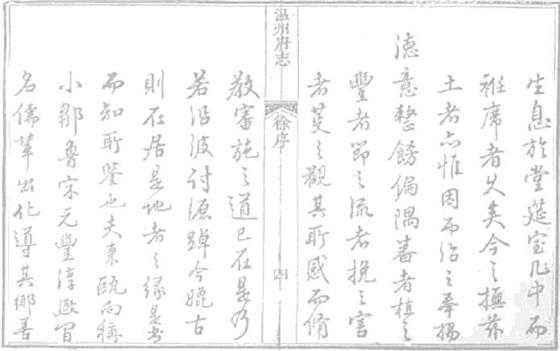 生息於堂筵室几中而
袵席者久矣今之撫茲
土者亦惟因而治之奉揚
德意整飭偏隅嗇者植之
豐者節之流者挽之害
者芟之觀其所感而脩
溫州府志
徐序
四
教審施之道已在是乃
若沿波討源踔今軼古
則在居是地者之緣是書
而知所鑒也夫東甌向稱
小鄒魯宋元豐淳熙間
名儒輩出化導其鄉善